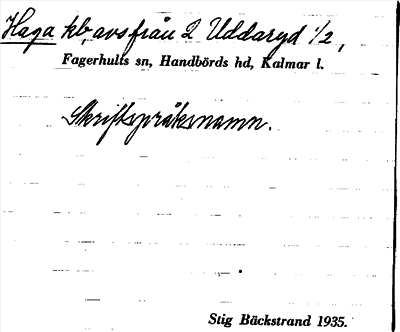 Haga kb, avs från 2 Uddaryd 1/2,
Fagerhults sn, Handbörds hd, Kalmar l.
Skriftspråksnamn.
Stig Bäckstrand 1935.